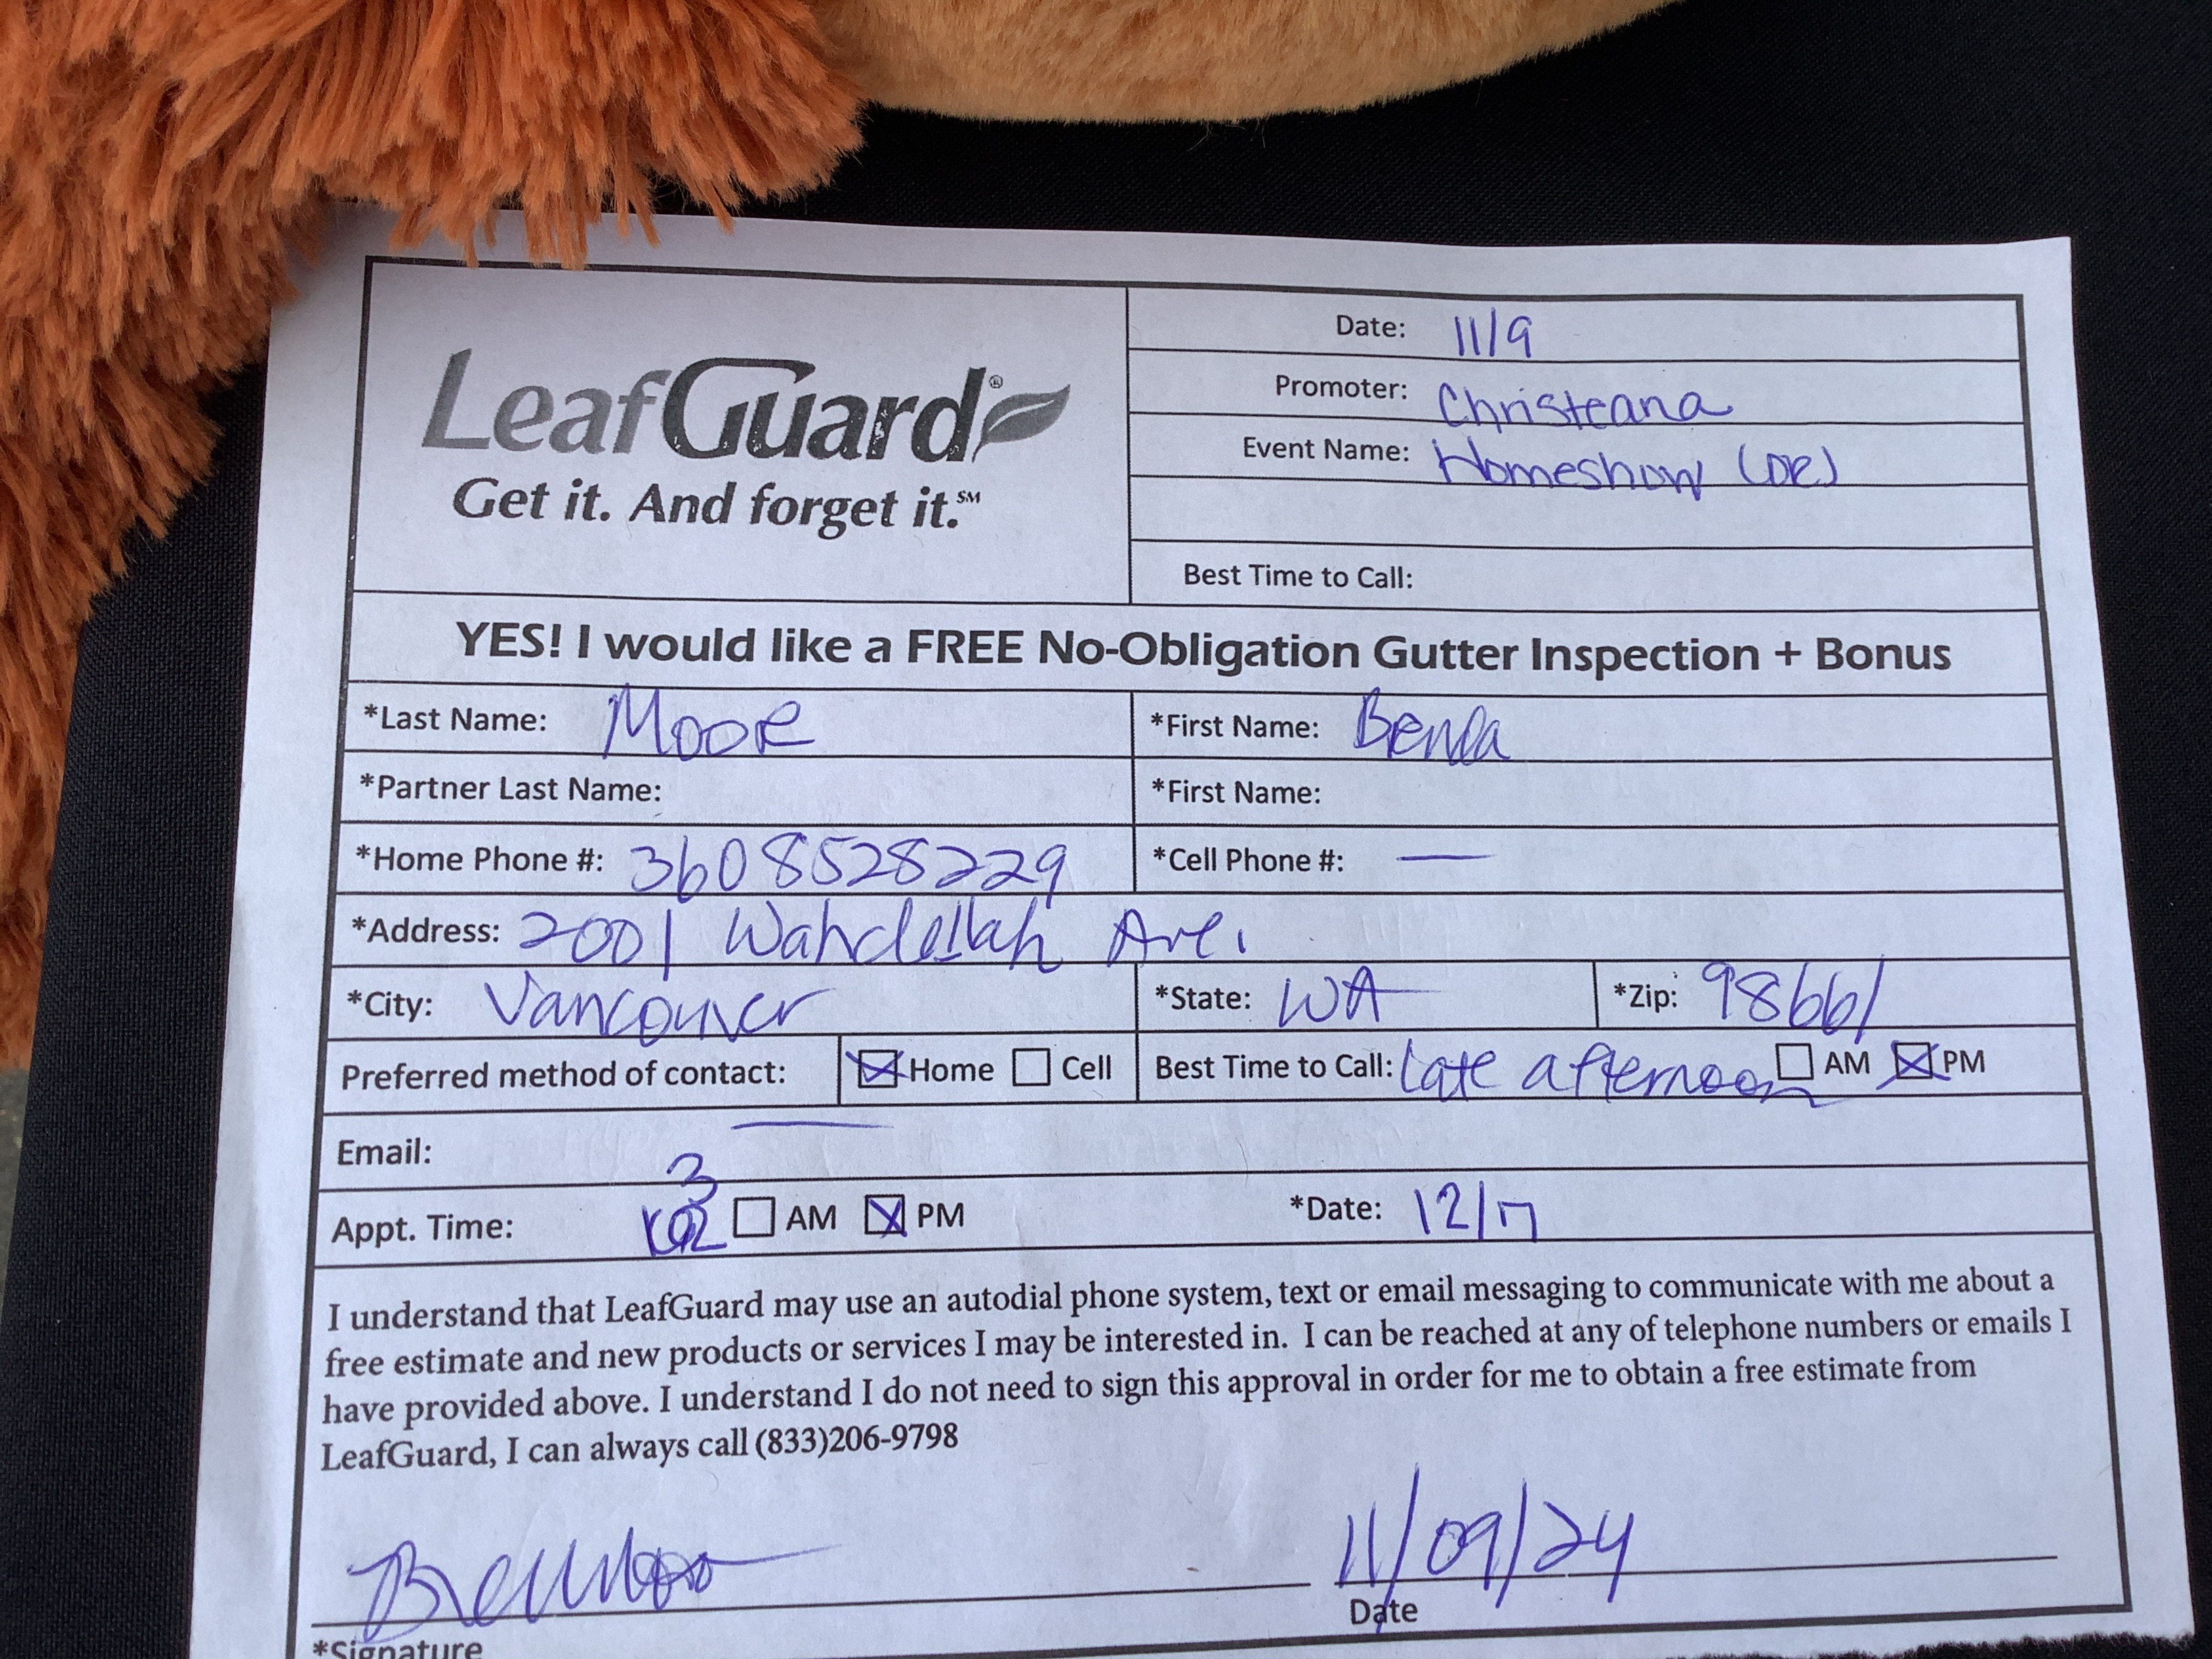 LeafGuard®
Get it. And forget it.℠
Date: 11/9
Promoter: Christeana
Event Name: Homeshow (OR)
Best Time to Call:
YES! I would like a FREE No-Obligation Gutter Inspection + Bonus
*Last Name: Moore *First Name: Benda
*Partner Last Name: *First Name:
*Home Phone #: 3608528229 *Cell Phone #: —
*Address: 2001 Ave.
*City: Vancouver *State: WA *Zip: 98661
Preferred method of contact: Home Cell Best Time to Call: late afternoon AM PM
Email: —
Appt. Time: 3 AM PM *Date: 12/17
I understand that LeafGuard may use an autodial phone system, text or email messaging to communicate with me about a
free estimate and new products or services I may be interested in. I can be reached at any of telephone numbers or emails I
have provided above. I understand I do not need to sign this approval in order for me to obtain a free estimate from
LeafGuard, I can always call (833)206-9798
11/09/24
*Signature Date